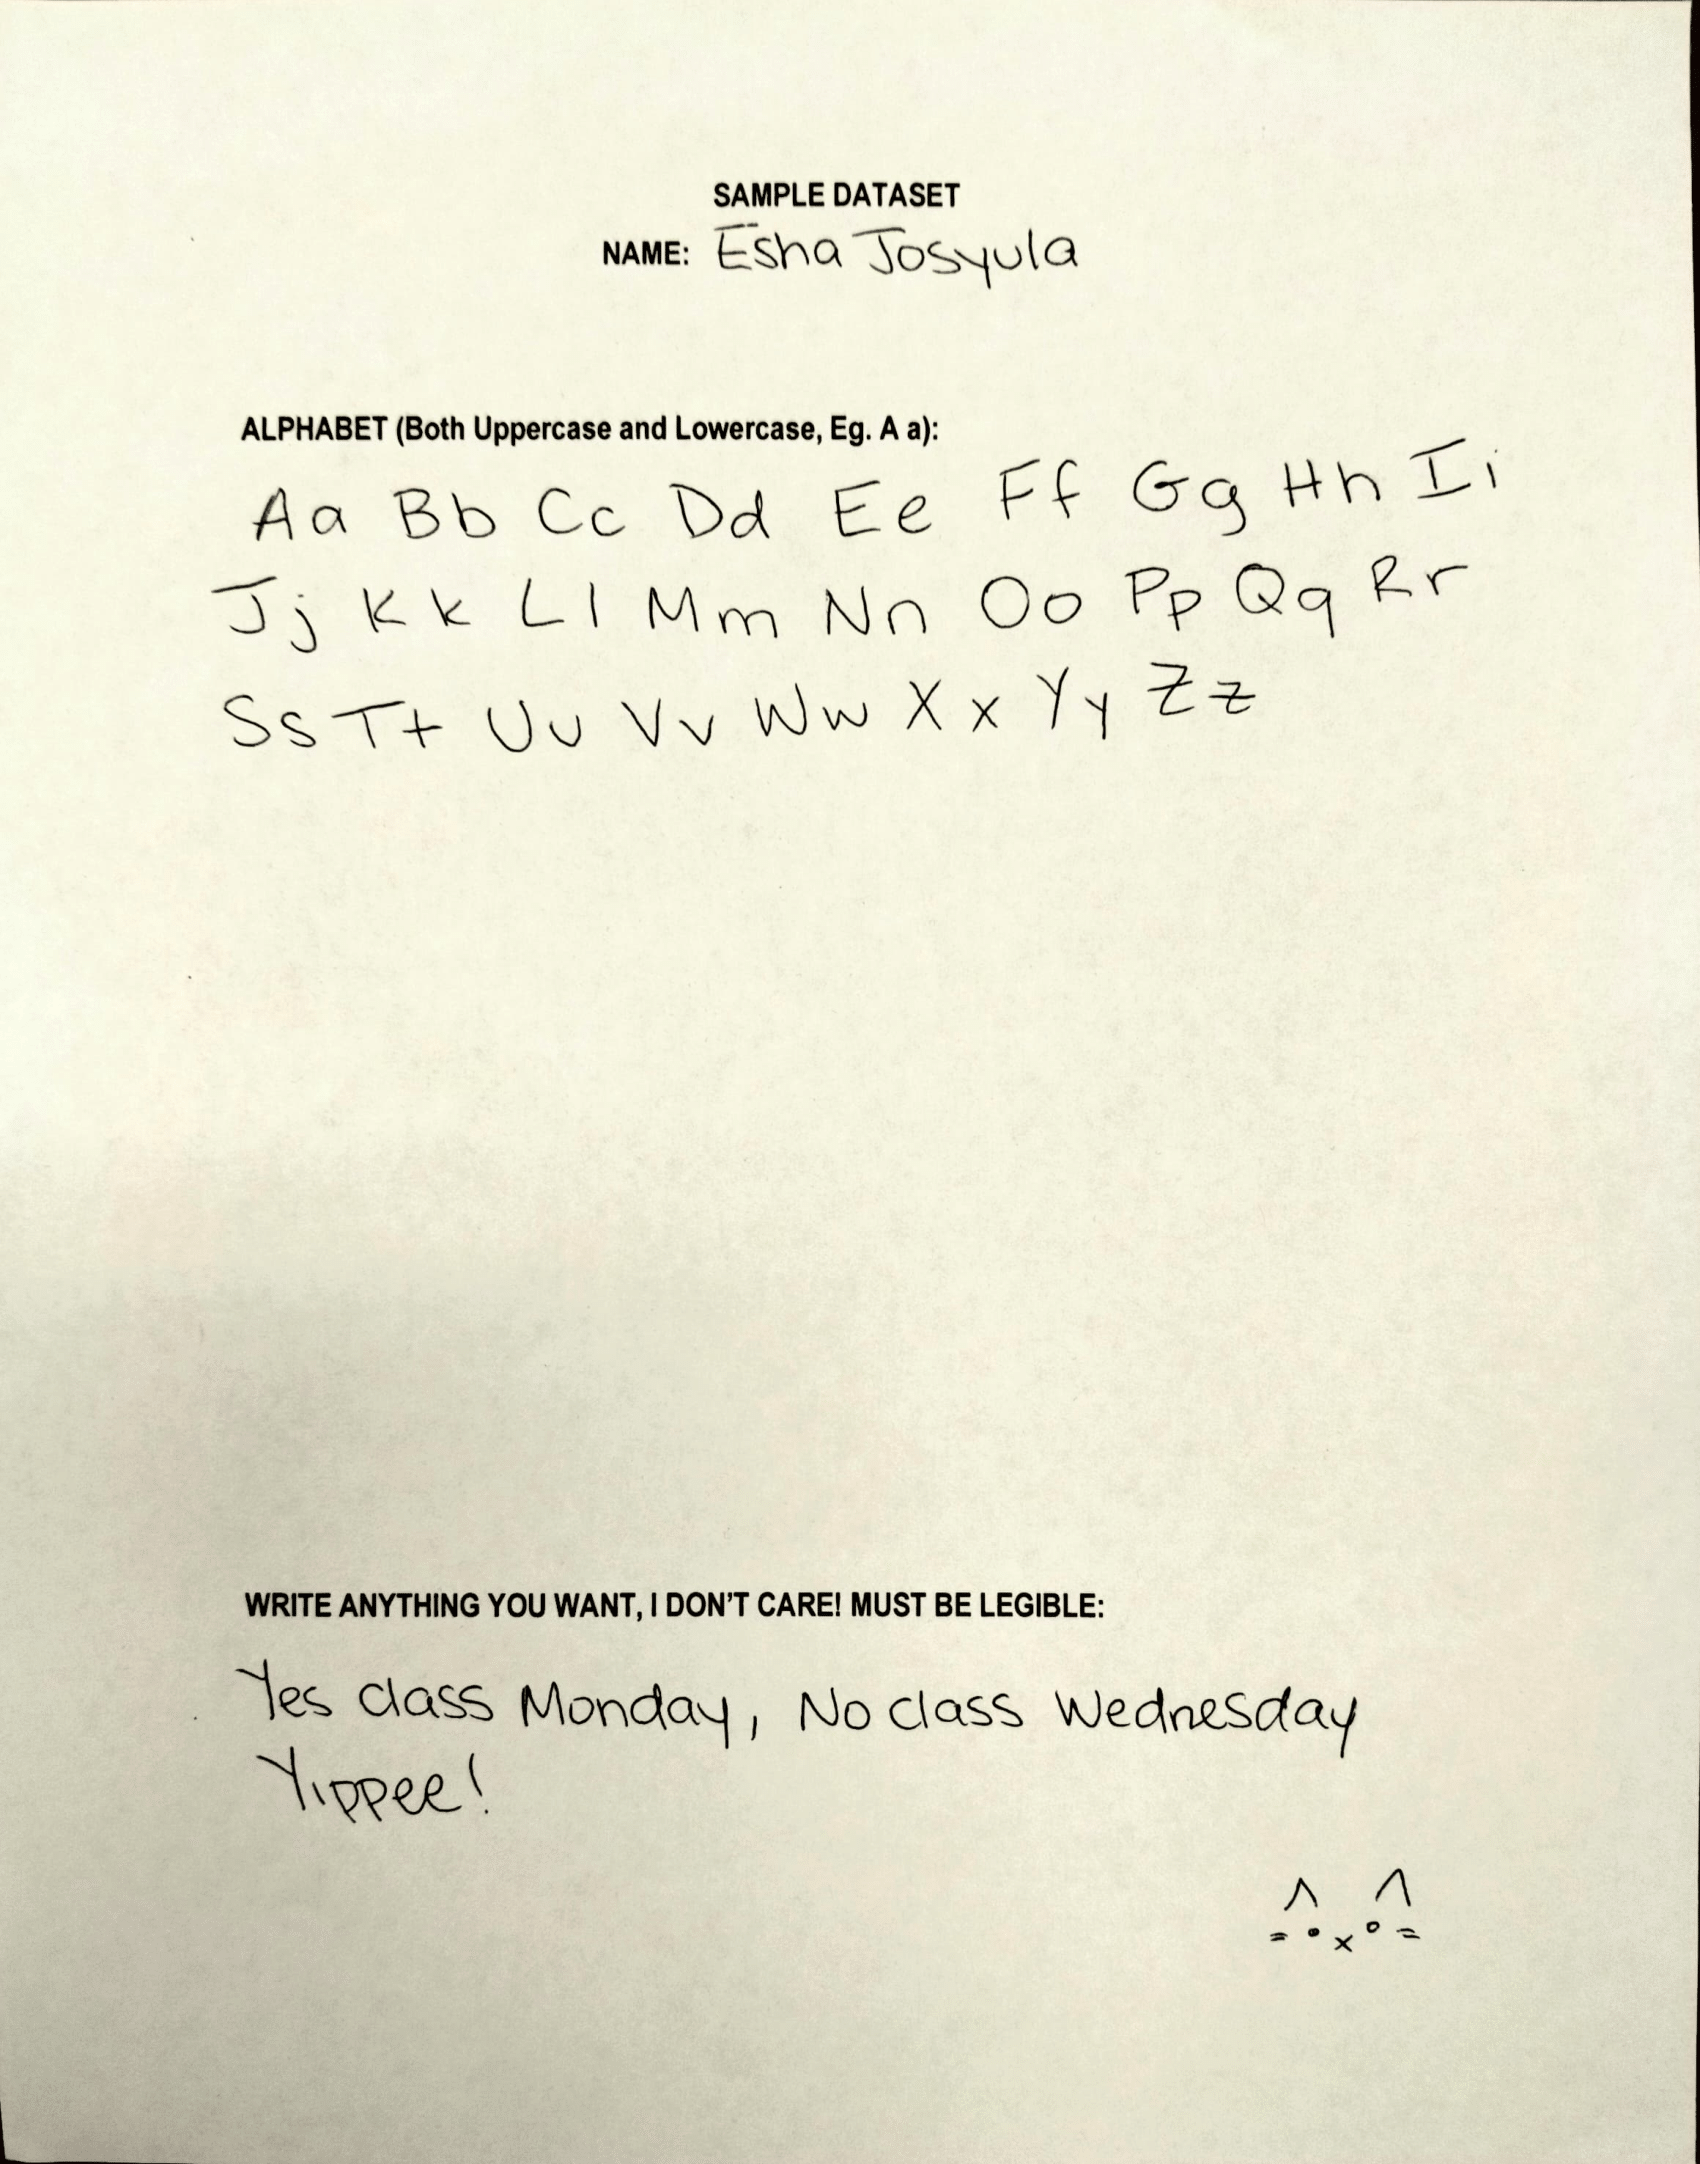 SAMPLE DATASET
NAME: Esha Josyula
ALPHABET (Both Uppercase and Lowercase, Eg. A a):
Aa Bb Cc Dd Ee Ff Gg Hh Ii
Jj Kk Ll Mm Nn Oo Pp Qq Rr
Ss Tt Uu Vv Ww Xx Yy Zz
WRITE ANYTHING YOU WANT, I DON'T CARE! MUST BE LEGIBLE:
Yes class Monday, No class Wednesday
Yippee!